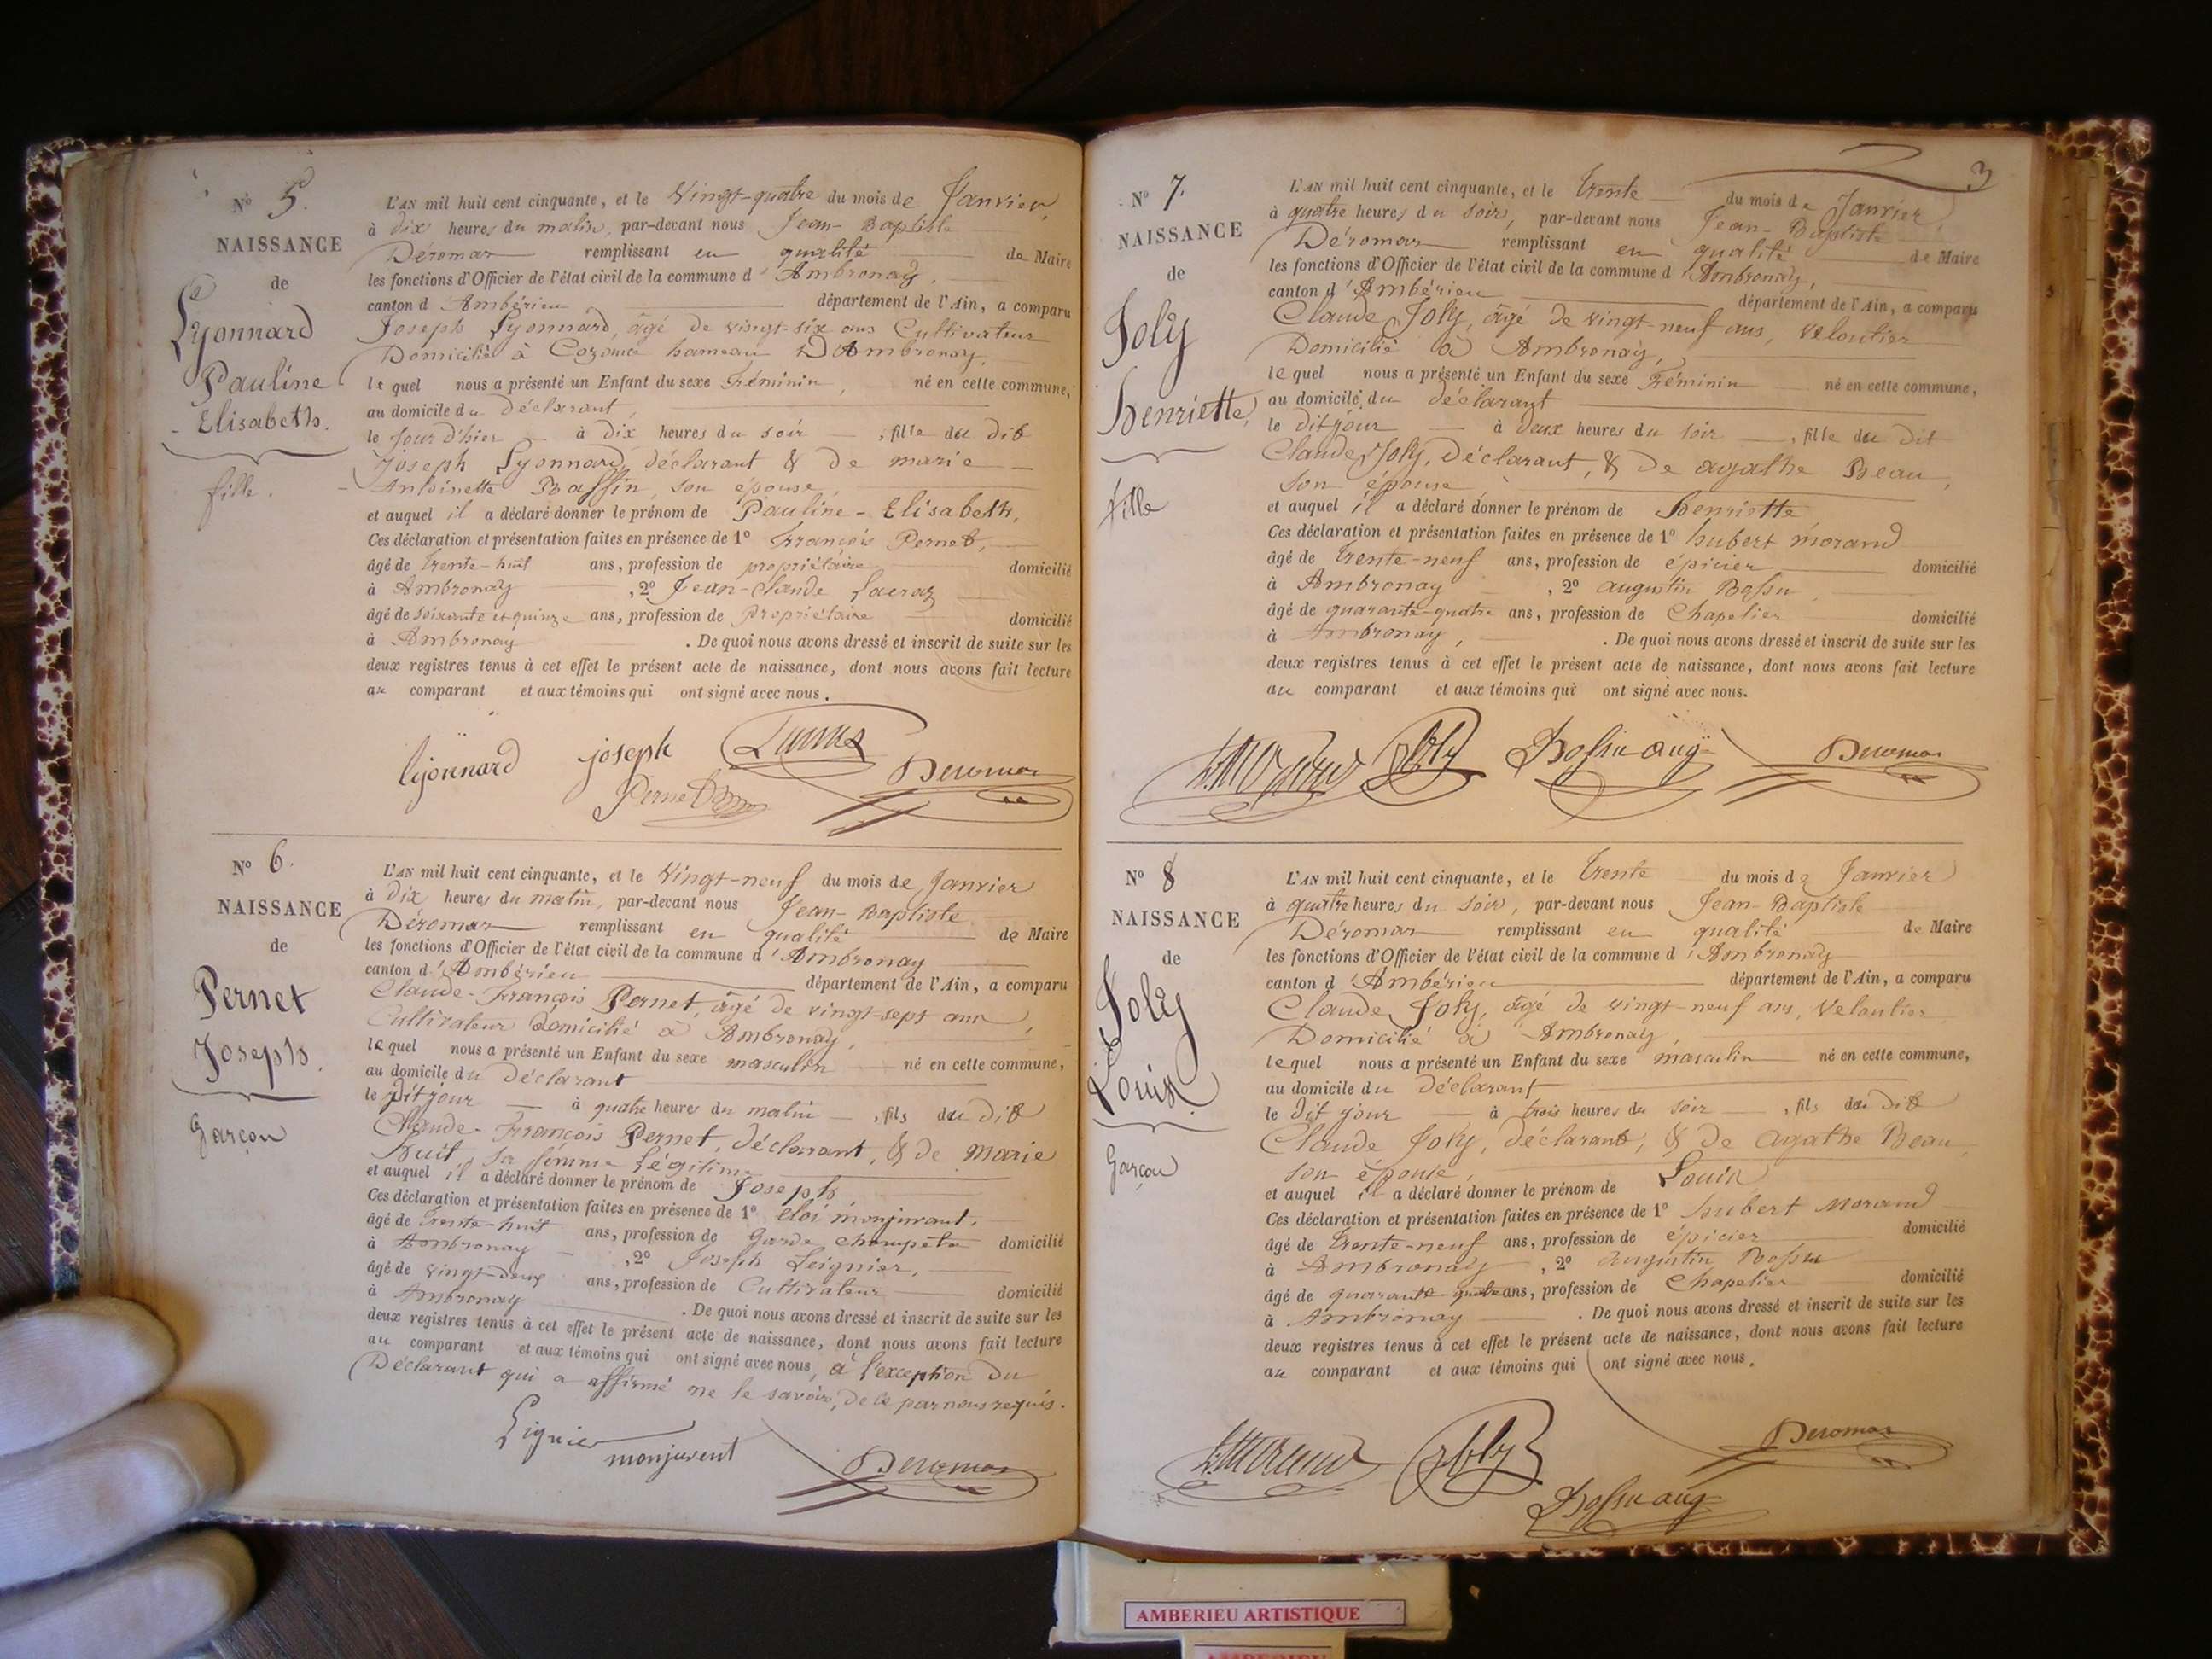 N° 5.
NAISSANCE
de
Lyonnard
Pauline
Elisabeth.
fille.
L'AN mil huit cent cinquante, et le Vingt-quatre du mois de Janvier,
à dix heures du matin, par-devant nous Jean-Baptiste
Déromas remplissant en qualité de Maire
les fonctions d'Officier de l'état civil de la commune d'Ambronay,
canton d'Ambérieu département de l'Ain, a comparu
Joseph Lyonnard, âgé de vingt-six ans Cultivateur
Domicilié à Cozance hameau D'Ambronay,
lequel nous a présenté un Enfant du sexe Féminin, né en cette commune,
au domicile du déclarant,
le jour d'hier à dix heures du soir, fille du dit
Joseph Lyonnard, déclarant & de marie
Antoinette Baffin, son épouse,
et auquel il a déclaré donner le prénom de Pauline-Elisabeth,
Ces déclaration et présentation faites en présence de 1° François Pernet,
âgé de trente-huit ans, profession de propriétaire domicilié
à Ambronay, 2° Jean-Claude
âgé de soixante et quinze ans, profession de Propriétaire domicilié
à Ambronay. De quoi nous avons dressé et inscrit de suite sur les
deux registres tenus à cet effet le présent acte de naissance, dont nous avons fait lecture
au comparant et aux témoins qui ont signé avec nous.
lyonnard joseph
Pernet Deromas
N° 6.
NAISSANCE
de
Pernet
Joseph.
Garçon
L'AN mil huit cent cinquante, et le Vingt-neuf du mois de Janvier
à Dix heures du matin, par-devant nous Jean-Baptiste
Déromas remplissant en qualité de Maire
les fonctions d'Officier de l'état civil de la commune d'Ambronay
canton d'Ambérieu département de l'Ain, a comparu
Claude-François Pernet, âgé de vingt-sept ans,
Cultivateur domicilié à Ambronay,
lequel nous a présenté un Enfant du sexe masculin né en cette commune,
au domicile du Déclarant
le dit jour à quatre heures du matin, fils du dit
Claude-François Pernet, déclarant, & de Marie
sa femme légitime
et auquel il a déclaré donner le prénom de Joseph,
Ces déclaration et présentation faites en présence de 1° éloi monjuvant,
âgé de trente-huit ans, profession de Garde champêtre domicilié
à Ambronay, 2° Joseph Leignier,
âgé de vingt-deux ans, profession de Cultivateur domicilié
à Ambronay. De quoi nous avons dressé et inscrit de suite sur les
deux registres tenus à cet effet le présent acte de naissance, dont nous avons fait lecture
au comparant et aux témoins qui ont signé avec nous, à l'exception du
Déclarant qui a affirmé ne le savoir, de ce par nous requis.
Lignier monjuvent Deromas
3
N° 7.
NAISSANCE
de
Joly
henriette,
fille
L'AN mil huit cent cinquante, et le trente du mois de Janvier
à quatre heures du soir, par-devant nous Jean-Baptiste
Déromas remplissant en qualité de Maire
les fonctions d'Officier de l'état civil de la commune d'Ambronay,
canton d'Ambérieu département de l'Ain, a comparu
Claude Joly, âgé de vingt-neuf ans, Veloutier
Domicilié à Ambronay,
lequel nous a présenté un Enfant du sexe Féminin né en cette commune,
au domicile du déclarant
le dit jour à deux heures du soir, fille du dit
Claude Joly, déclarant, & de agathe Beau,
son épouse,
et auquel il a déclaré donner le prénom de henriette
Ces déclaration et présentation faites en présence de 1° hubert morand
âgé de trente-neuf ans, profession de épicier domicilié
à Ambronay, 2° augustin Bossu,
âgé de quarante-quatre ans, profession de Chapelier domicilié
à Ambronay,. De quoi nous avons dressé et inscrit de suite sur les
deux registres tenus à cet effet le présent acte de naissance, dont nous avons fait lecture
au comparant et aux témoins qui ont signé avec nous.
Joly Bossu aug Deromas
N° 8
NAISSANCE
de
Joly
Louis.
Garçon
L'AN mil huit cent cinquante, et le trente du mois de Janvier
à quatre heures du soir, par-devant nous Jean-Baptiste
Déromas remplissant en qualité de Maire
les fonctions d'Officier de l'état civil de la commune d'Ambronay
canton d'Ambérieu département de l'Ain, a comparu
Claude Joly, âgé de vingt-neuf ans, Veloutier
Domicilié à Ambronay,
lequel nous a présenté un Enfant du sexe masculin né en cette commune,
au domicile du déclarant
le dit jour à trois heures du soir, fils du dit
Claude Joly, déclarant, & de agathe Beau,
son épouse,
et auquel il a déclaré donner le prénom de Louis
Ces déclaration et présentation faites en présence de 1° hubert Morand
âgé de trente-neuf ans, profession de épicier domicilié
à Ambronay, 2° augustin Bossu
âgé de quarante-quatre ans, profession de Chapelier domicilié
à Ambronay. De quoi nous avons dressé et inscrit de suite sur les
deux registres tenus à cet effet le présent acte de naissance, dont nous avons fait lecture
au comparant et aux témoins qui ont signé avec nous.
h. Morand Joly Deromas
Bossu aug
AMBERIEU ARTISTIQUE
AMBERIEU